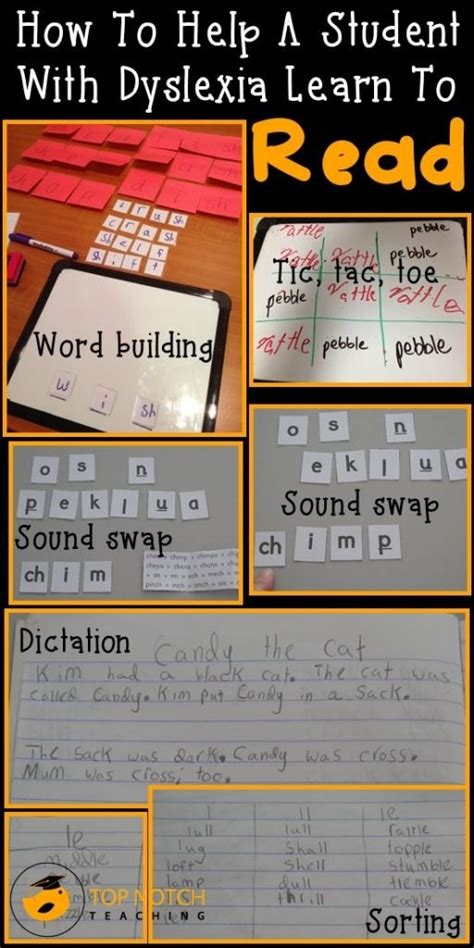 How To Help A Student
With Dyslexia Learn To
Read
t r u sh
c r a sh
sh e l f
sh i f t
Word building
w i sh
rattle pebble
rattle rattle pebble
Tic, tac, toe
pebble rattle rattle
rattle pebble pebble
o s n
p e k l u a
Sound swap
ch i m
o s n
e k l u a
Sound swap
ch i m p
Dictation
Candy the cat
Kim had a black cat. The cat was
called Candy. Kim put Candy in a sack.
The sack was dark. Candy was cross.
Mum was cross, too.
le
middle
l ll le
lull lull
lug shall topple
loft shell stumble
lamp dull tremble
thrill cackle
TOP NOTCH
TEACHING
Sorting